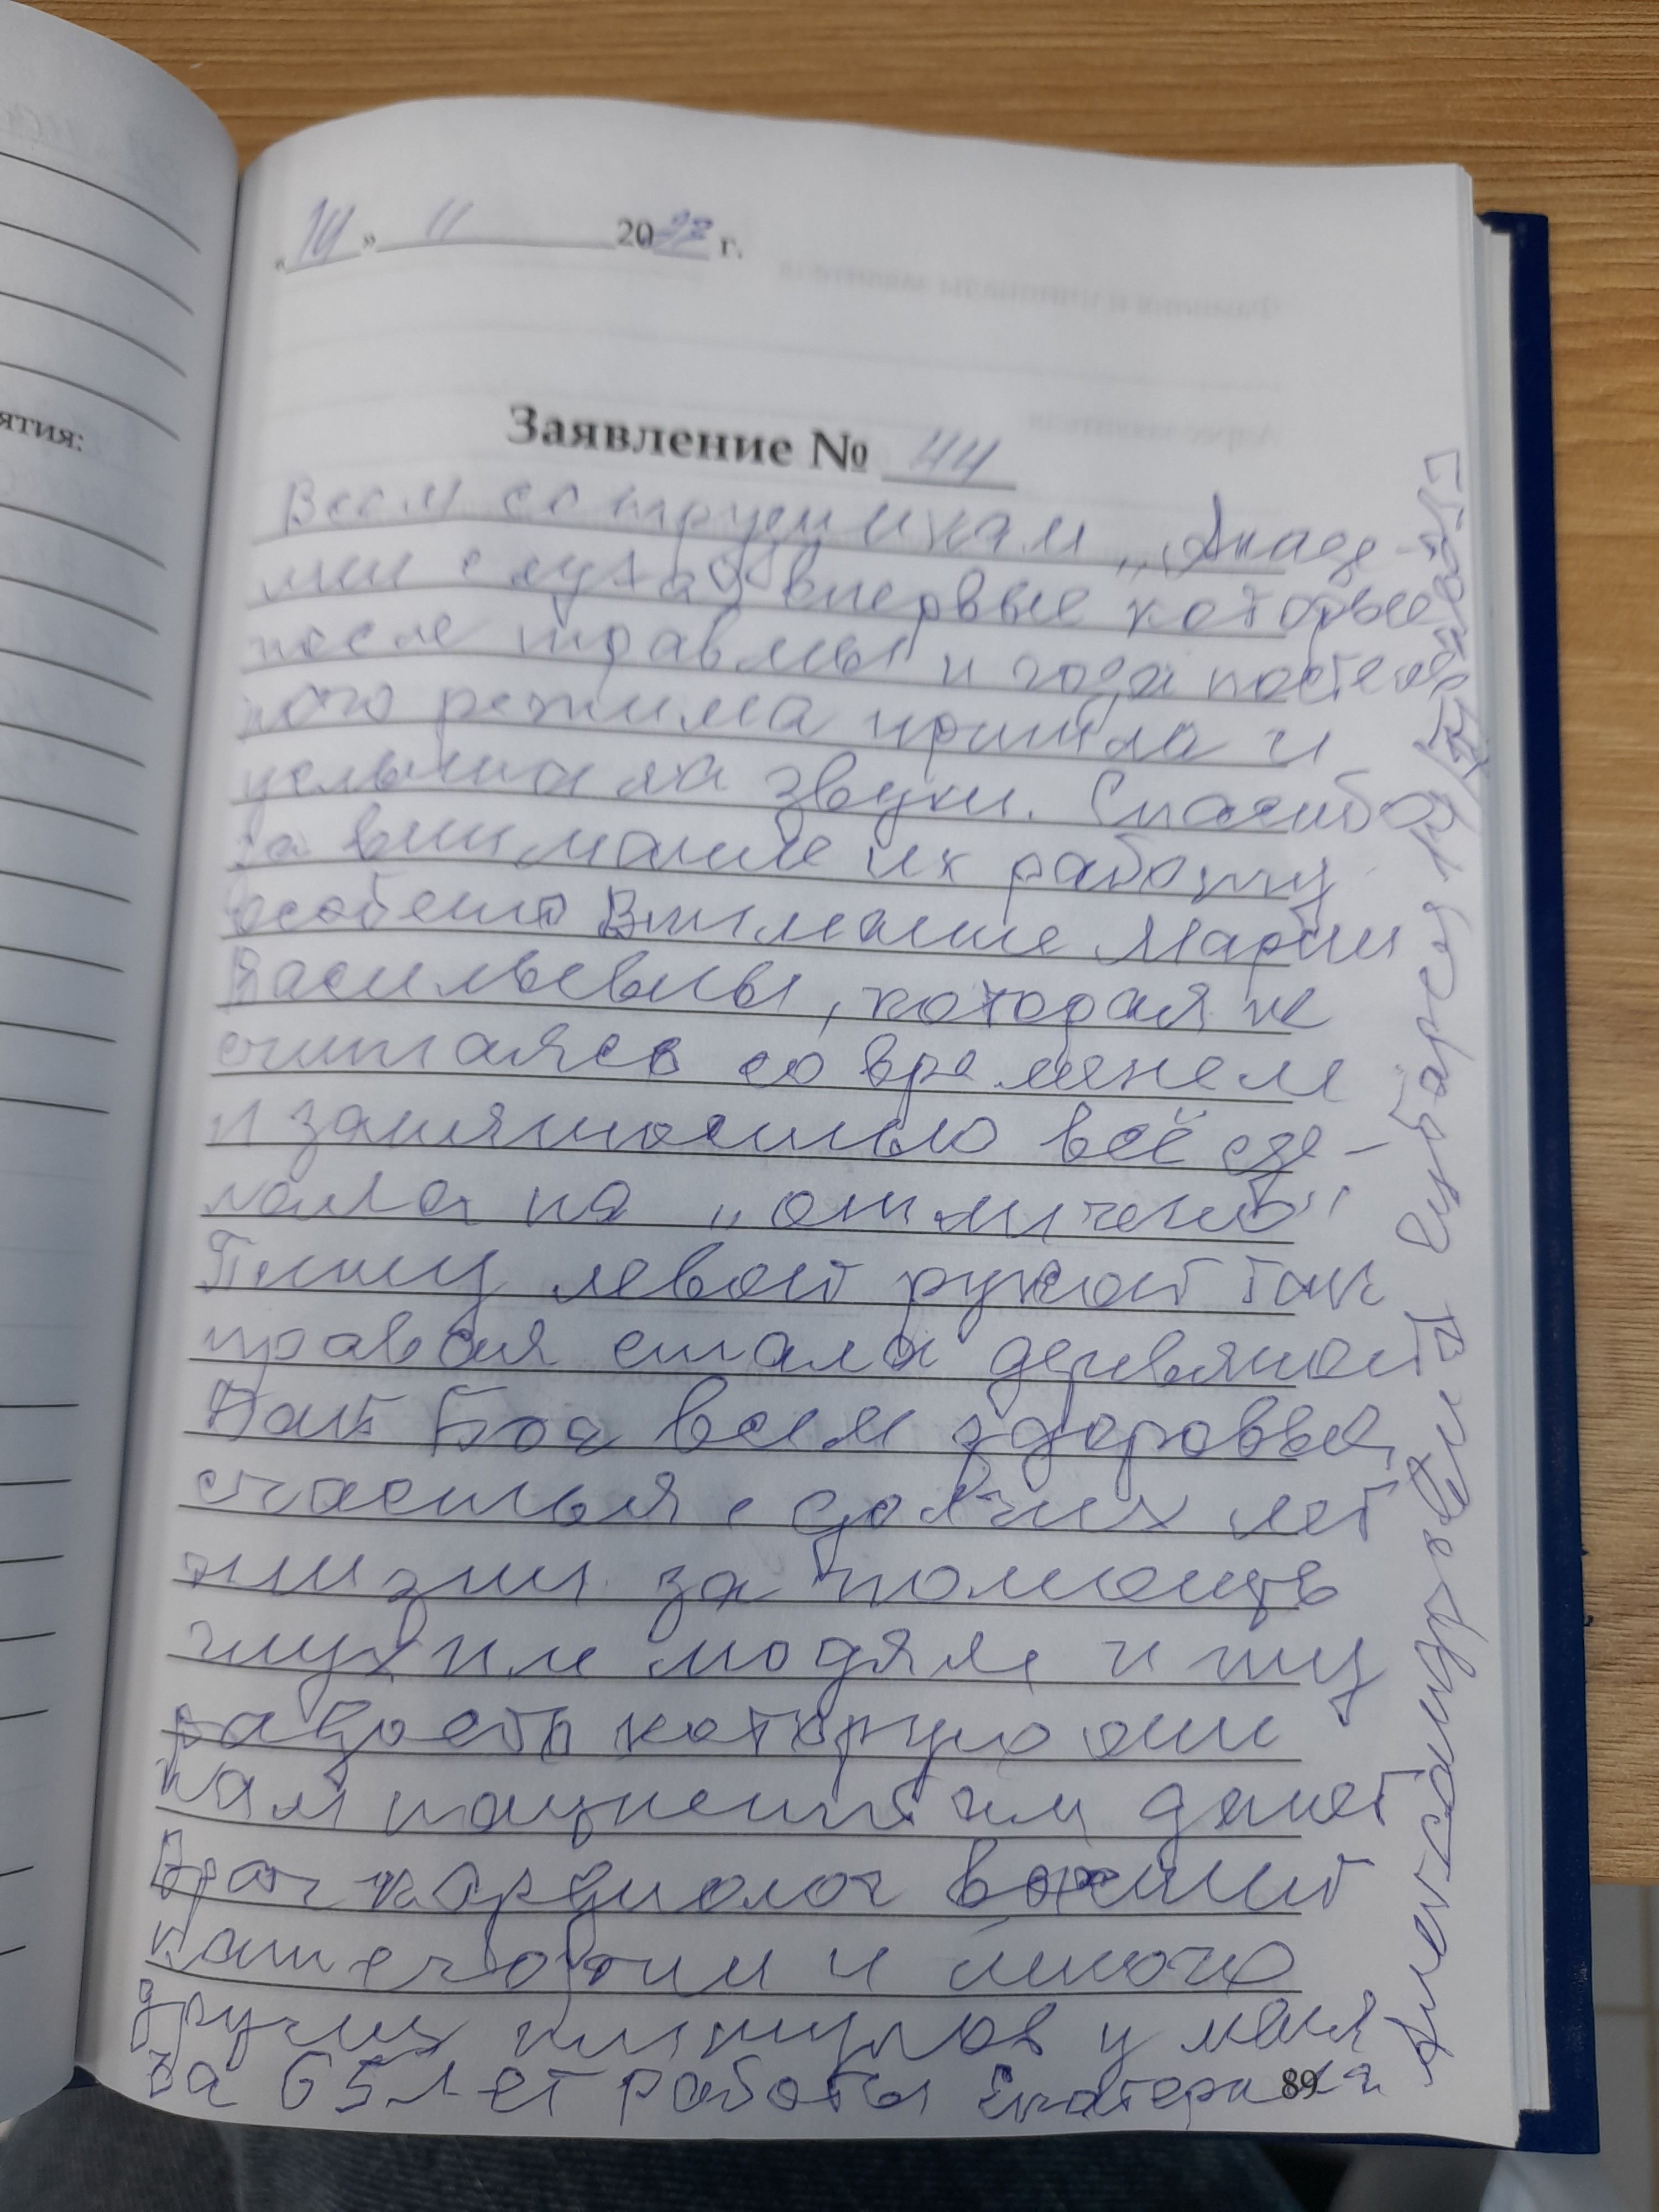 ятия:
« 14 » 11 2022 г.
Заявление № 44
Всем сотрудникам „Акаде-
мии слуха" впервые которые
после травмы и года постель
ного режима пришла и
услышала звуки. Спасибо
за внимание их работу
особено внимание Марии
Васильевны, которая не
считаясь со временем
и занятностью всё сде-
лала на „отличено"
Пишу левой рукой так
правая стала деревяной
Дай Бог всем здоровья,
счастья, долгих лет
жизни за помощь
глухим людям и ту
радость которую они
нам пациентам дают
Врач кардиолог высшей
категории и много
других титулов у меня
за 65 лет работы Екатерина
Александровна
89